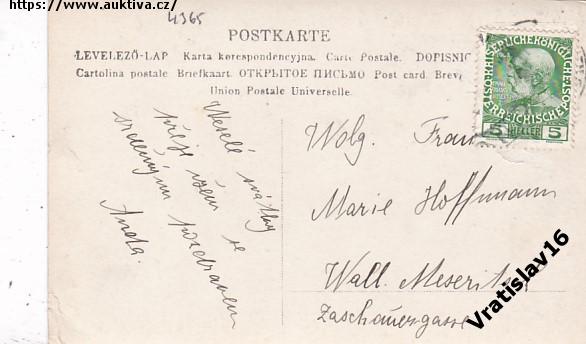 https://www.auktiva.cz/
4365
POSTKARTE
LEVELEZŐ-LAP Karta korespondencyjna. Carte Postale. DOPISNIC
Cartolina postale Briefkaart. ОТКРЫТОЕ ПИСЬМО Post card. Brev
Union Postale Universelle.
KAISERLICHE KÖNIGLICHE
ÖSTERREICHISCHE
5 HELLER 5
Veselé svátky
přeje všem se
srdečným pozdravem
Anda.
Wolg. Frau
Marie Hoffmann
Wall. Meseritz
Zaschauergasse
Vratislav16